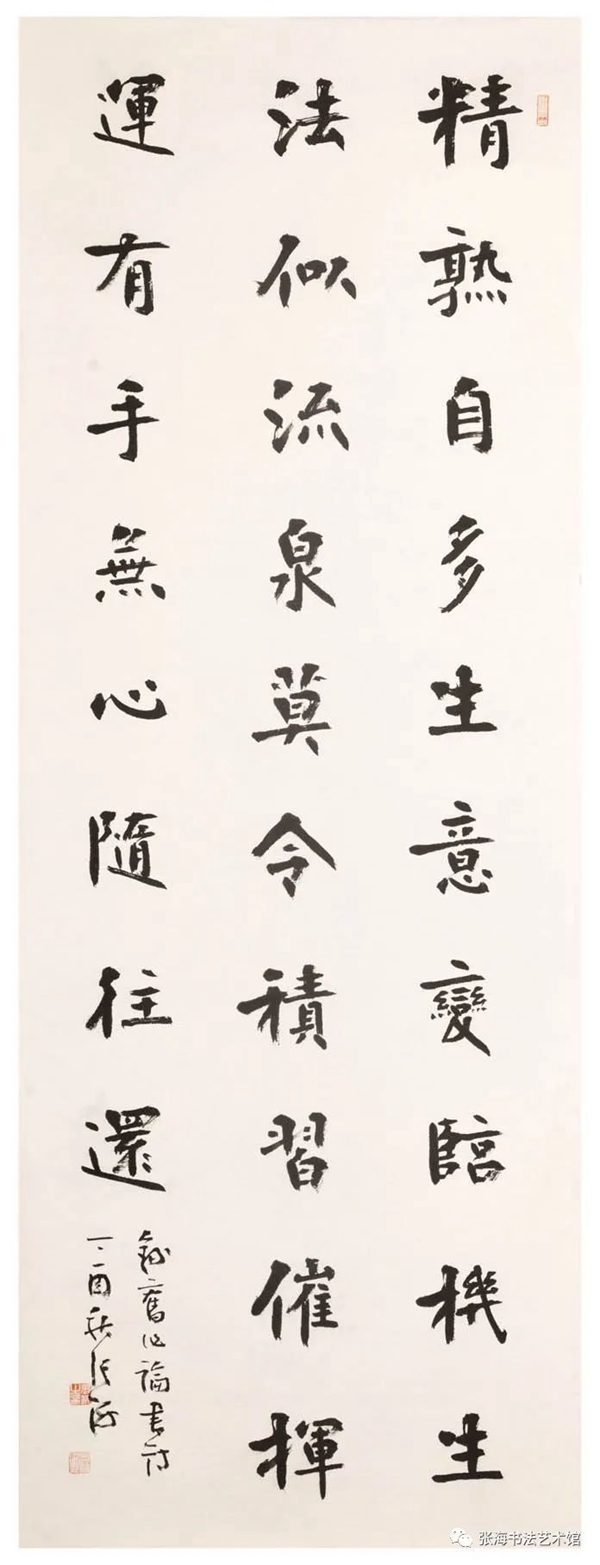 精熟自多生意變臨機生
法似流泉莫令積習催揮
運有手無心隨往還
錄舊作論書詩
丁酉秋張海
张海书法艺术馆